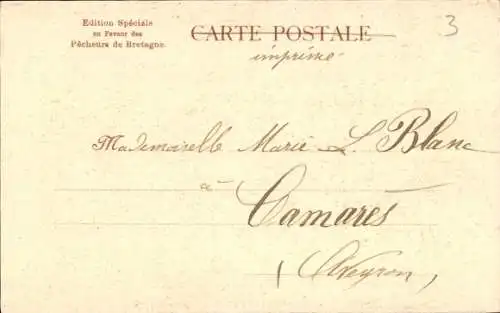 Edition Spéciale
en Faveur des
Pêcheurs de Bretagne.
CARTE POSTALE
imprimé
3
Mademoiselle Marie L. Blanc
à
Camarès
(Aveyron)